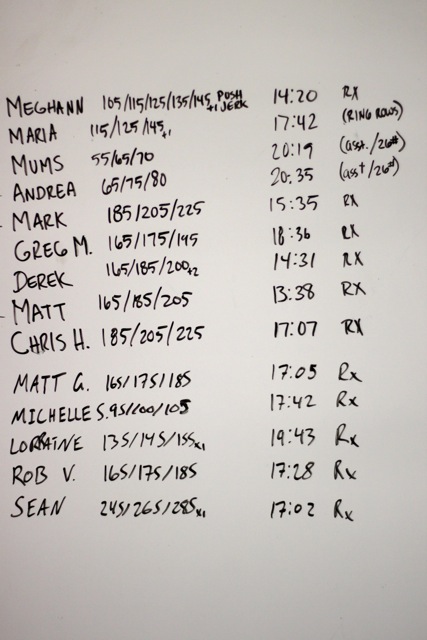 MEGHANN 105/115/125/135/145+1 PUSH JERK 14:20 RX
MARIA 115/125/145+1 17:42 (RING ROWS)
MUMS 55/65/70 20:19 (asst./26#)
ANDREA 65/75/80 20:35 (asst/26#)
MARK 185/205/225 15:35 RX
GREG M. 165/175/195 18:36 RX
DEREK 165/185/200+2 14:31 RX
MATT 165/185/205 13:38 RX
CHRIS H. 185/205/225 17:07 RX
MATT G. 165/175/185 17:05 Rx
MICHELLE S. 95/100/105 17:42 Rx
LORRAINE 135/145/155x1 19:43 Rx
ROB V. 165/175/185 17:28 Rx
SEAN 245/265/285x1 17:02 Rx